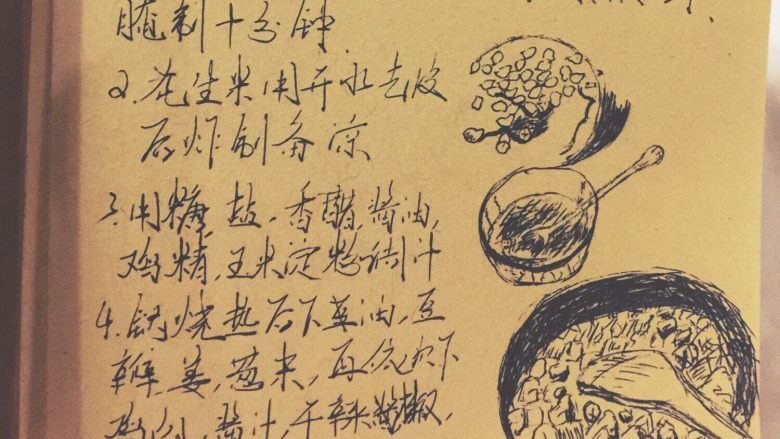 腌制十分钟
2.花生米用开水去皮
后炸制备凉
3.用糖,盐,香醋,酱油,
鸡精,玉米淀粉调汁
4.锅烧热后下菜油,豆
瓣,姜,葱末,再依次下
酱汁,干辣椒,